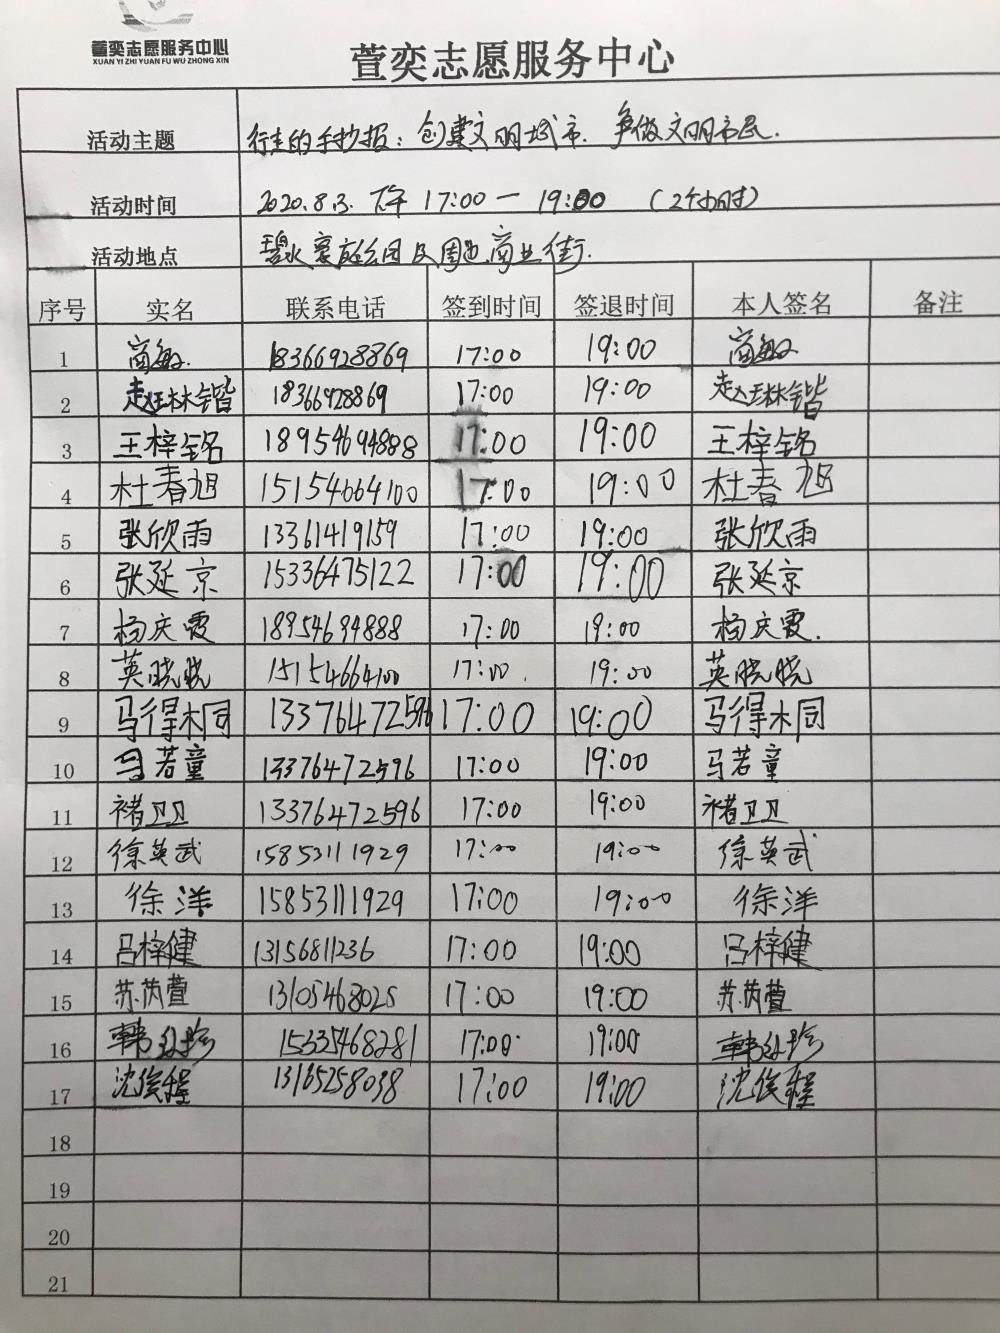 萱奕志愿服务中心
XUAN YI ZHI YUAN FU WU ZHONG XIN
萱奕志愿服务中心
活动主题 行走的手抄报：创建文明城市．争做文明市民．
活动时间 2020.8.3. 下午 17:00 一 19:00 （2个小时）
活动地点 碧水豪庭公园及周边商业街．
序号 实名 联系电话 签到时间 签退时间 本人签名 备注
1 商敏 18366928869 17:00 19:00 商敏
2 赵珏林锴 18366928869 17:00 19:00 赵珏林锴
3 王梓铭 18954694888 17:00 19:00 王梓铭
4 杜春旭 15154664100 17:00 19:00 杜春旭
5 张欣雨 13361419159 17:00 19:00 张欣雨
6 张延京 15336475122 17:00 19:00 张延京
7 杨庆霞 18954694888 17:00 19:00 杨庆霞．
8 英晓晓 15154664100 17:00 19:00 英晓晓
9 马得桐 13376472596 17:00 19:00 马得桐
10 马若童 13376472596 17:00 19:00 马若童
11 褚卫卫 13376472596 17:00 19:00 褚卫卫
12 徐英武 15853111929 17:00 19:00 徐英武
13 徐洋 15853111929 17:00 19:00 徐洋
14 吕梓健 13156811236 17:00 19:00 吕梓健
15 苏芮萱 13105468025 17:00 19:00 苏芮萱
16 15335468281 17:00 19:00
17 沈俟程 13165258038 17:00 19:00 沈俟程
18
19
20
21